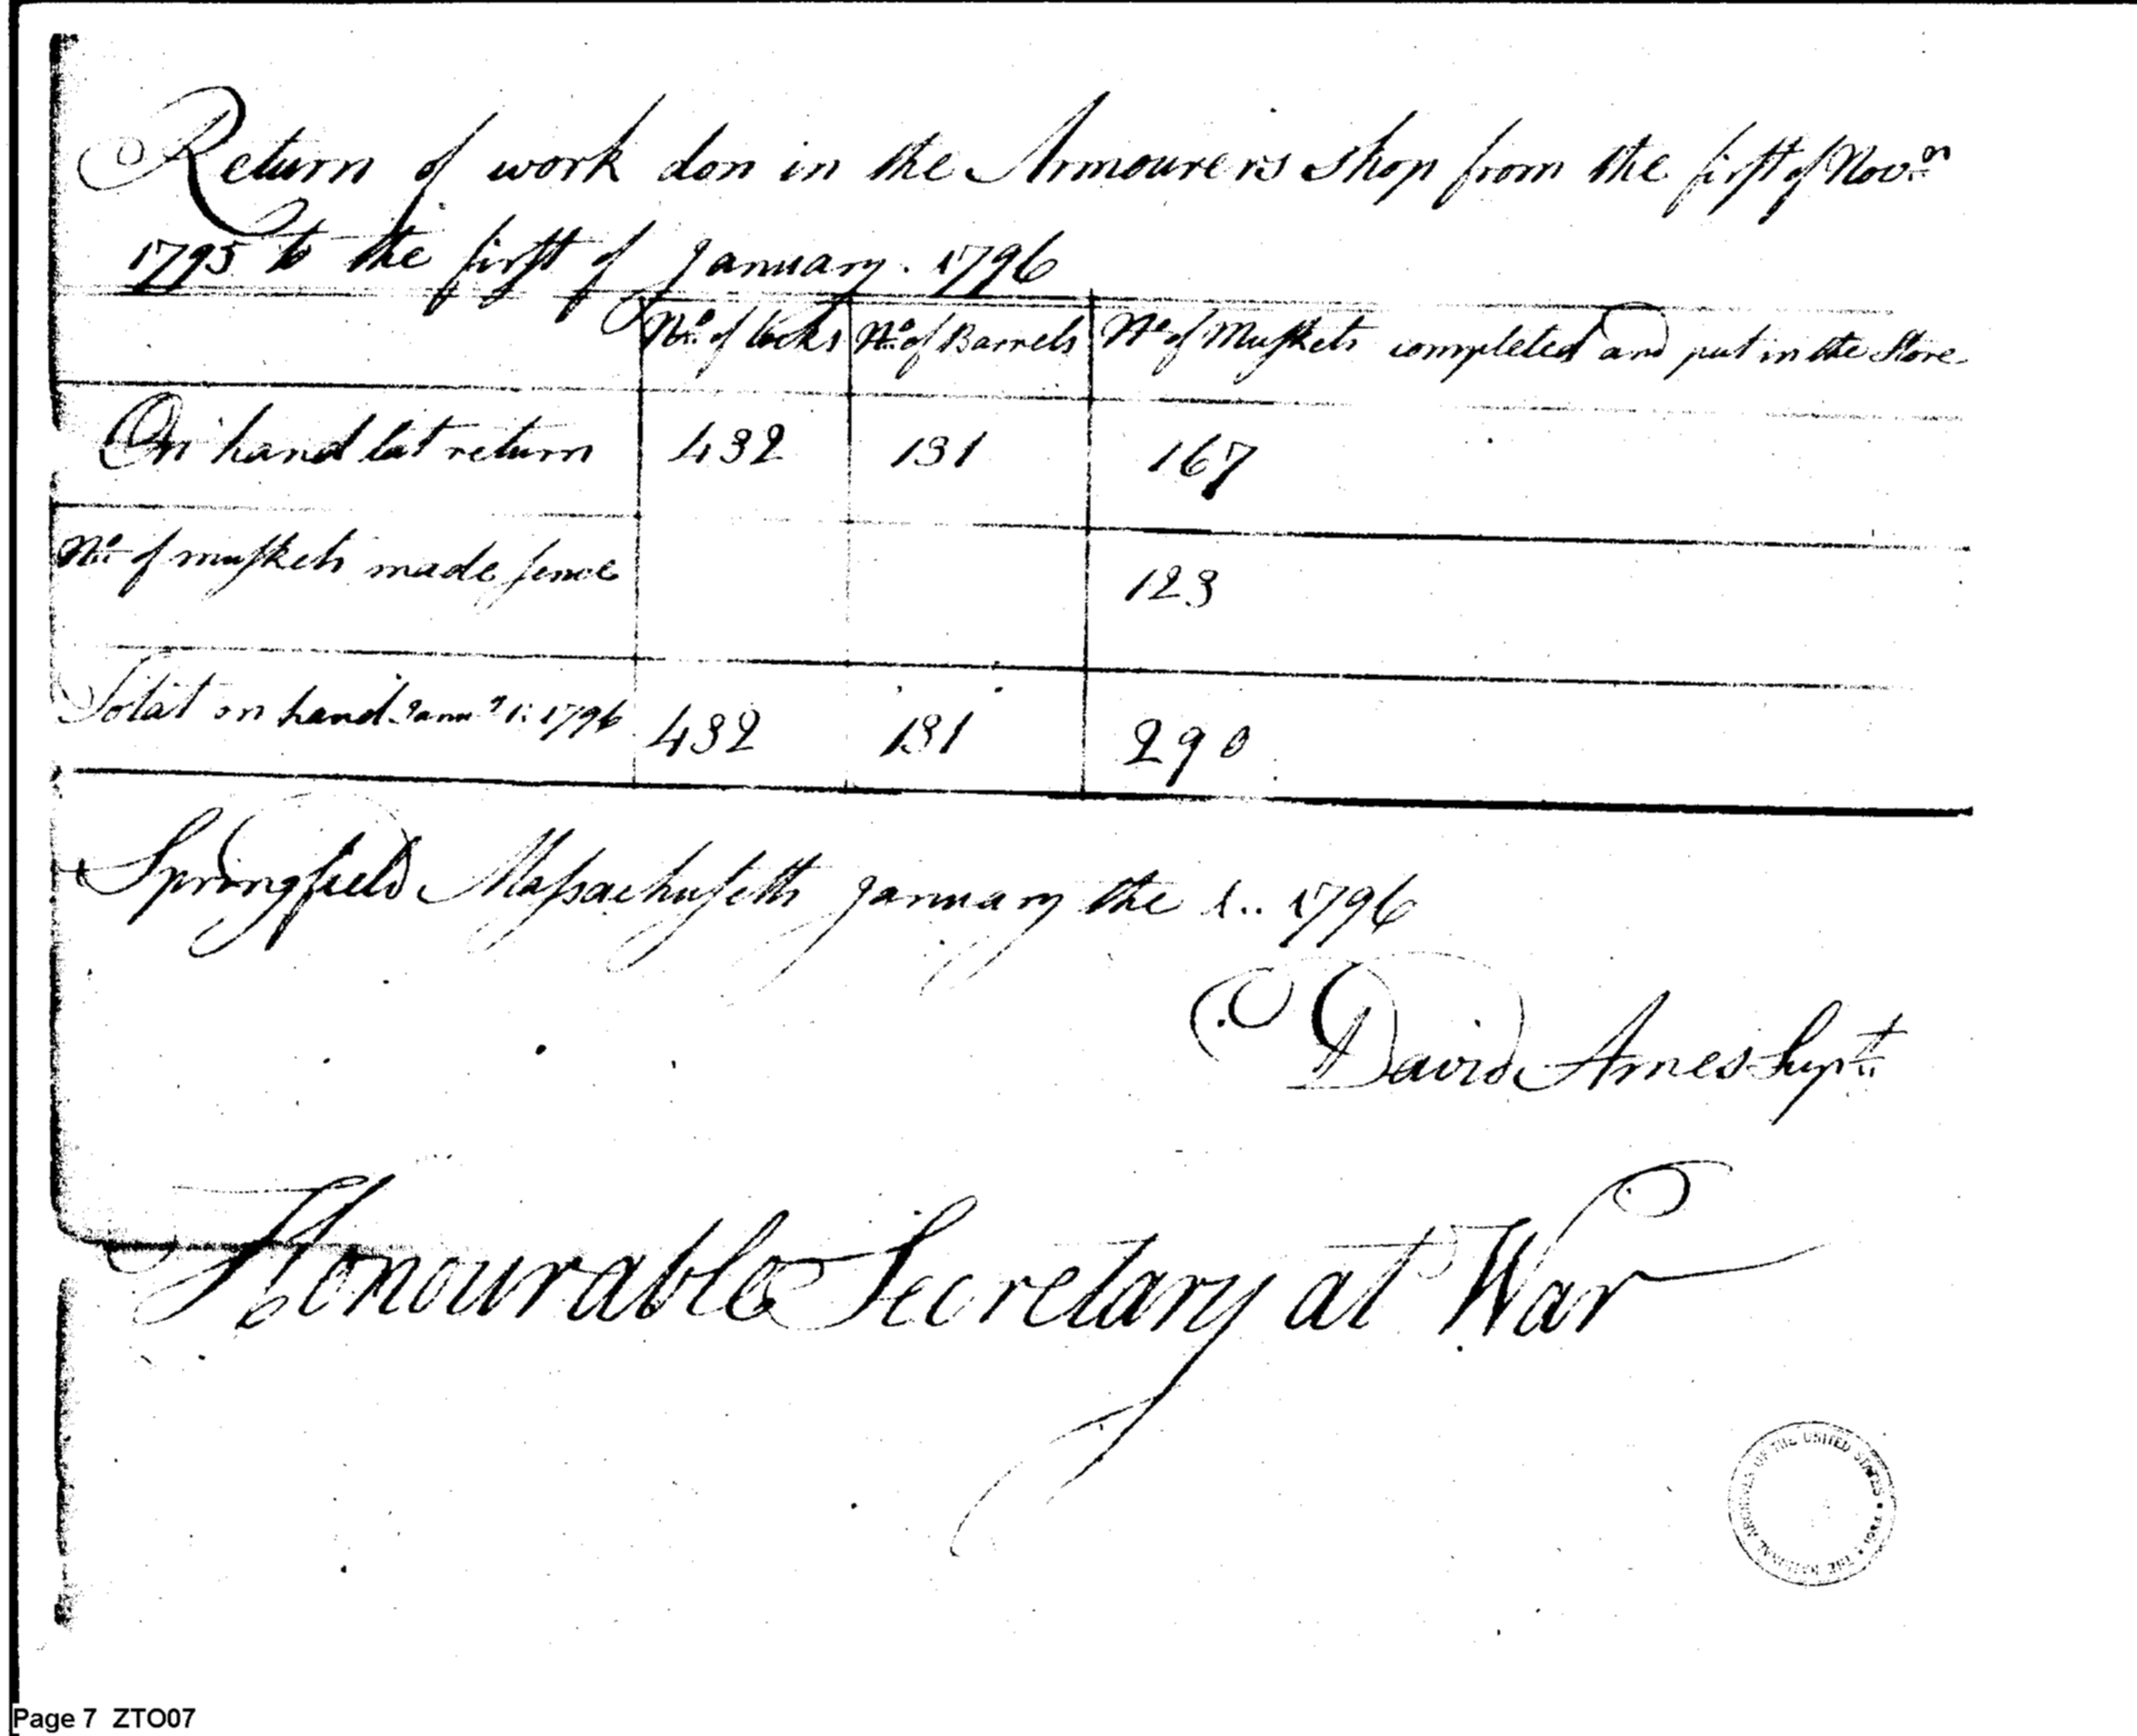 Return of work don in the Armourers Shop from the first of Novr
1795 to the first of January. 1796
No. of locks No. of Barrels No of Muskets completed and put in the Store
On hand last return 432 131 167
No. of muskets made sence 123
Total on hand Janu.y 1: 1796 432 131 290
Springfield Massachusetts January the 1.. 1796
David Ames Supt
Honourable Secretary at War
THE NATIONAL ARCHIVES OF THE UNITED STATES
Page 7 ZTO07